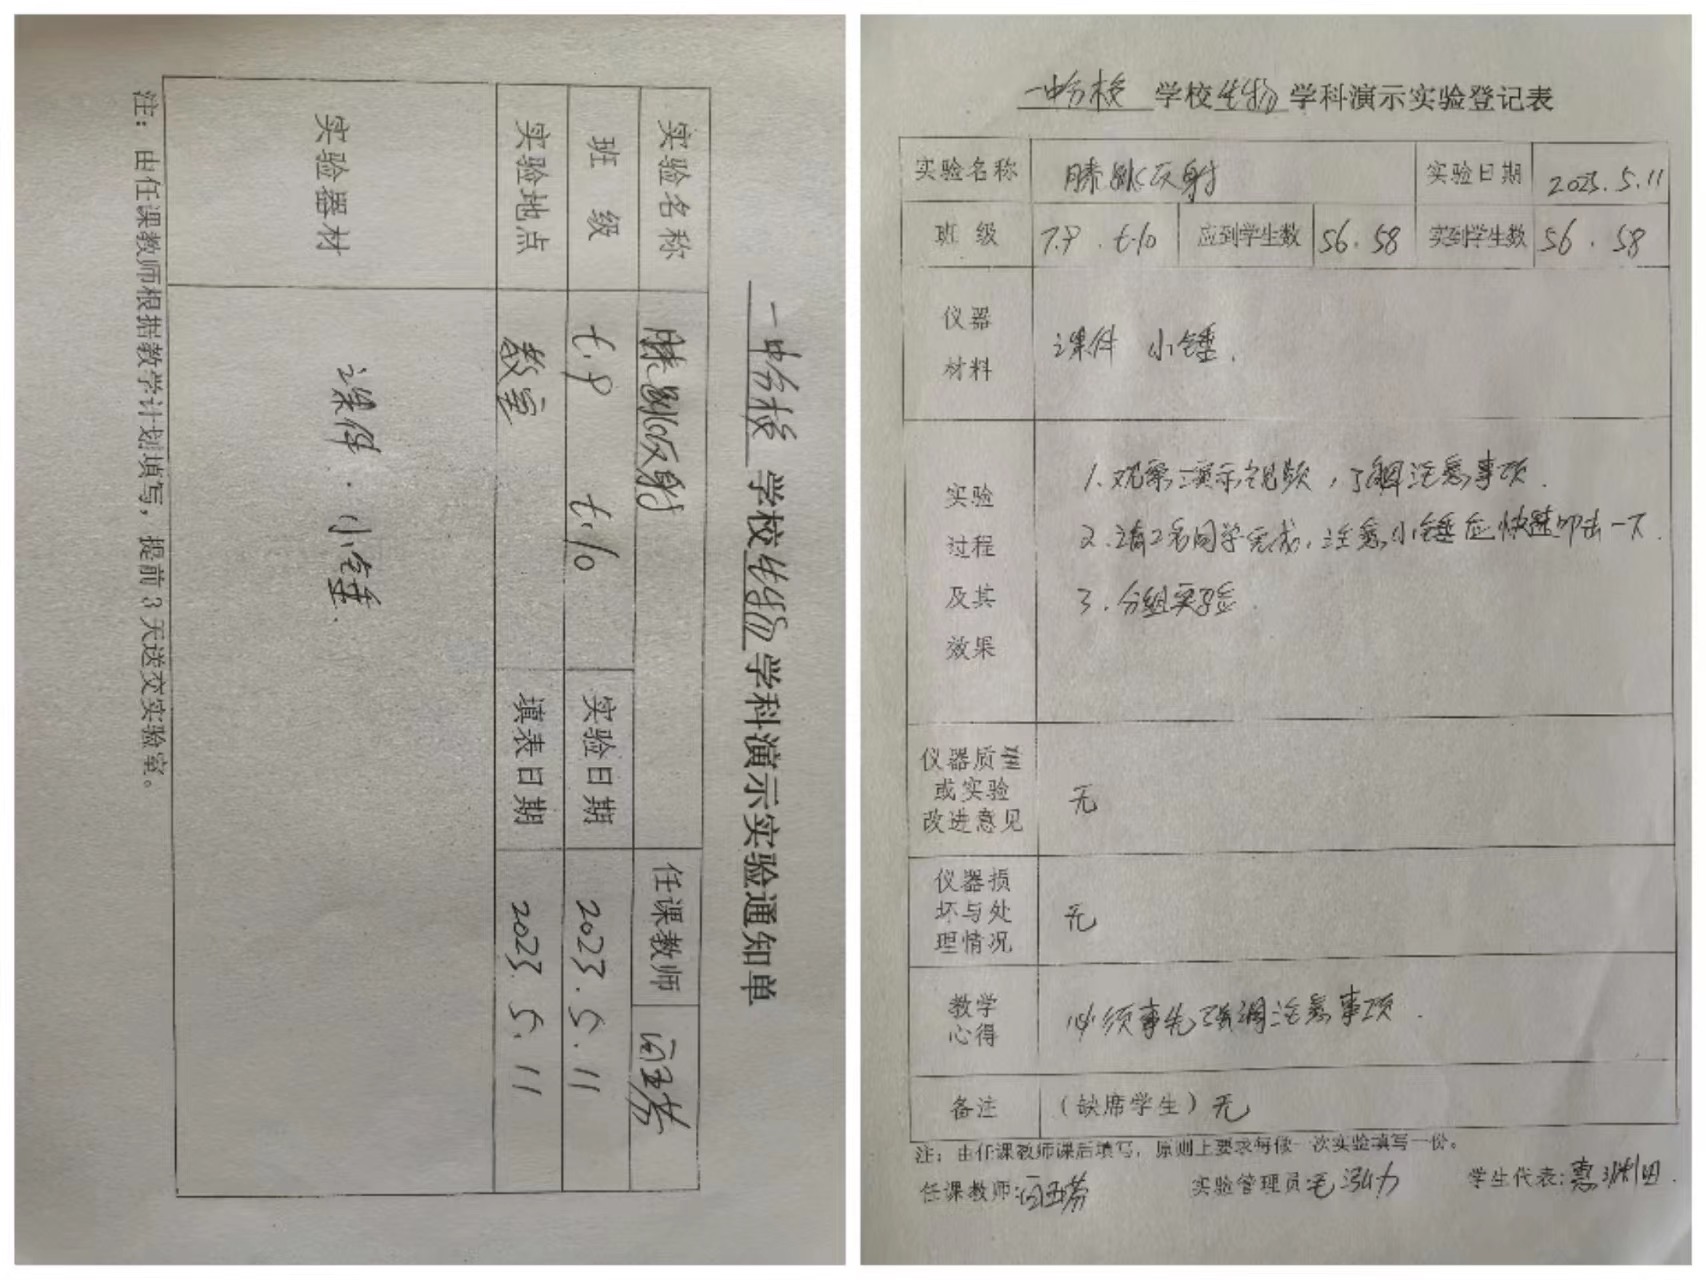 一中分校 学校 生物 学科演示实验通知单
实验名称 膝跳反射 任课教师
班 级 七.9 七.10 实验日期 2023.5.11
实验地点 教室 填表日期 2023.5.11
实验器材 课件.小锤.
注：由任课教师根据教学计划填写，提前3天送交实验室。
一中分校 学校 生物 学科演示实验登记表
实验名称 膝跳反射 实验日期 2023.5.11
班 级 7.9 .七.10 应到学生数 56.58 实到学生数 56.58
仪器
材料
课件 小锤.
实验
过程
及其
效果
1.观察演示视频，了解注意事项.
2.请2名同学完成，注意小锤应快速叩击一下.
3.分组实验.
仪器质量
或实验
改进意见
无
仪器损
坏与处
理情况
无
教学
心得
必须事先强调注意事项.
备注 （缺席学生）无
注：由任课教师课后填写，原则上要求每做一次实验填写一份。
任课教师: 实验管理员: 学生代表: